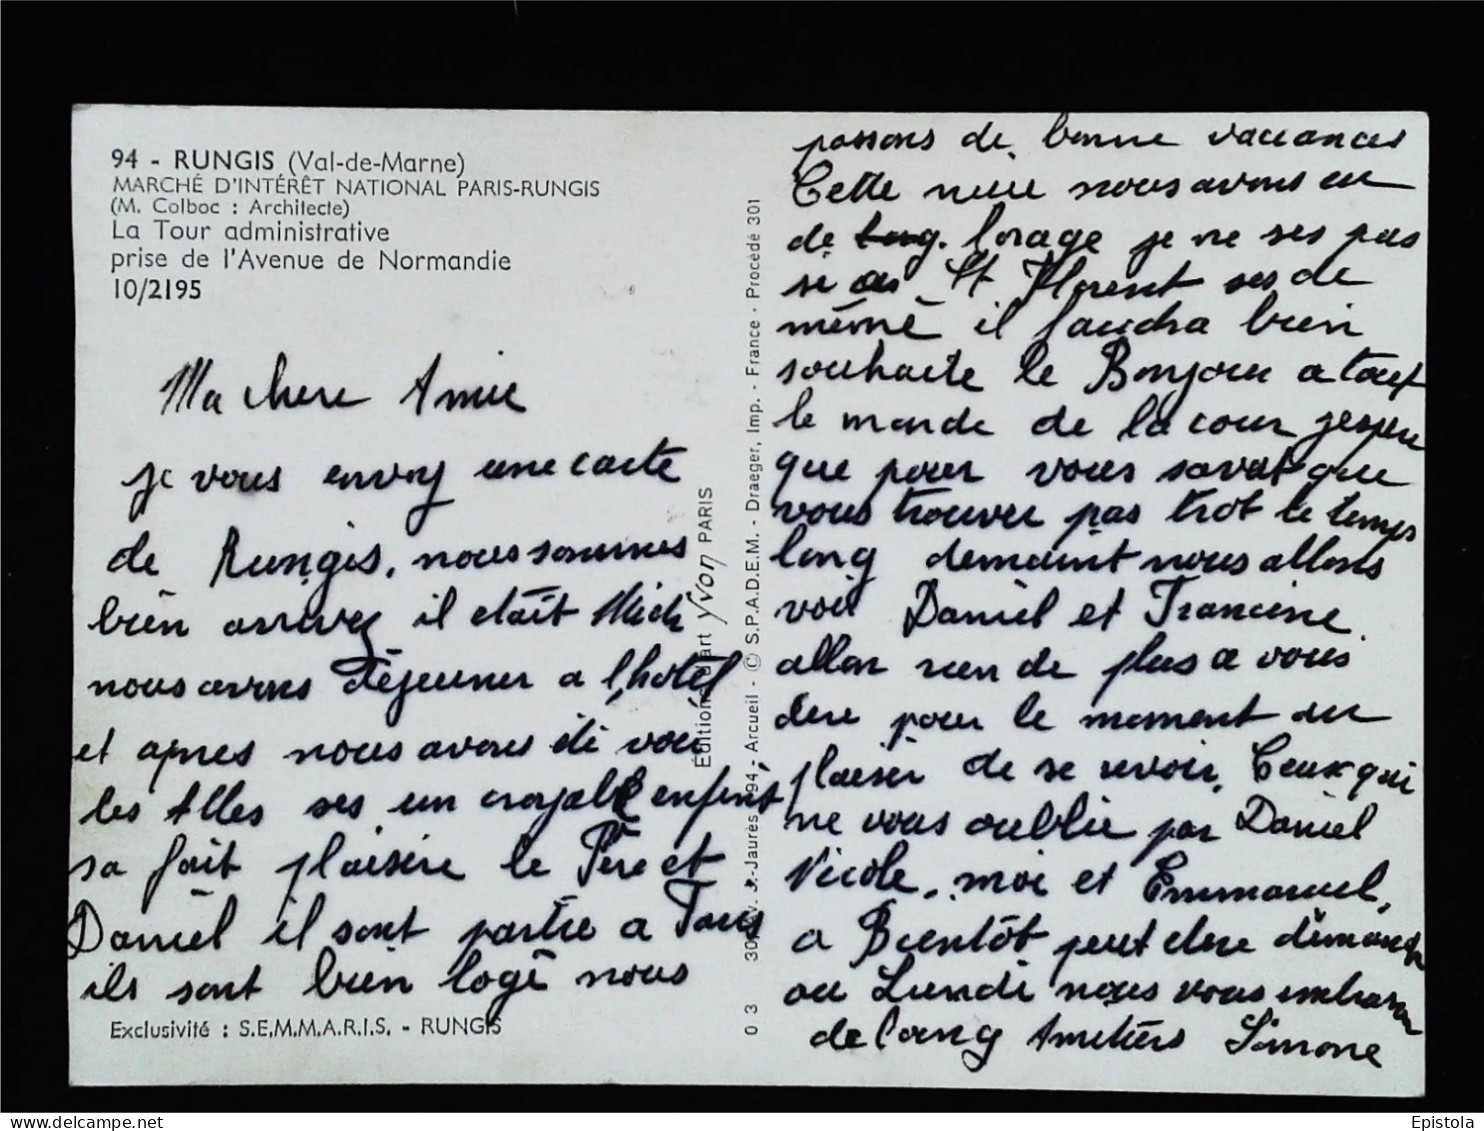 94 - RUNGIS (Val-de-Marne)
MARCHÉ D'INTÉRÊT NATIONAL PARIS-RUNGIS
(M. Colboc : Architecte)
La Tour administrative
prise de l'Avenue de Normandie
10/2195
Ma chere Amie
je vous envoy une carte
de Rungis, nous sommes
bien arrivez il etait Midi
nous avons déjeuner a l'hotel
et apres nous avons été voir
les Alles ses un croyable enfint
sa fait plaisire le Père et
Daniel il sont partie a Paris
ils sont bien logé nous
Exclusivité : S.E.M.M.A.R.I.S. - RUNGIS
Éditions d'art Yvon PARIS
0 3 30, V. J.-Jaurès - 94 - Arcueil - © S.P.A.D.E.M. - Draeger, Imp. - France - Procédé 301
passons de bonne vaccances
Cette nuit nous avons eu
de l'orage je ne ses pas
si a St Florent ses de
même il faudra bien
souhaite le Bonjour a tout
le monde de la cour jespere
que pour vous sava que
vous trouver pas trot le temps
long demaint nous allons
voir Daniel et Francine.
allon rien de plus a vous
dire pour le moment au
plaisir de se revoir. Ceux qui
ne vous oublie par Daniel
Nicole, moi et Emmanuel,
a Bientôt peut etre dimanche
ou Lundi nous vous embrasson
de loing Amitiers Simone
Epistola
www.delcampe.net